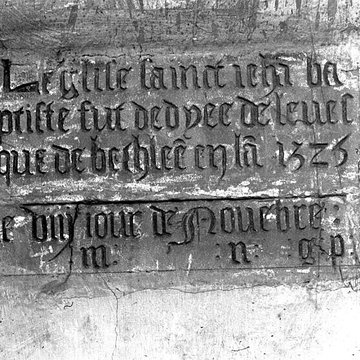 Leglise sainct jehā ba
ptiste fut dedyee de leves
que de bethleē en lā 1525
e viij jour de Novēbre :
m : : n : g p